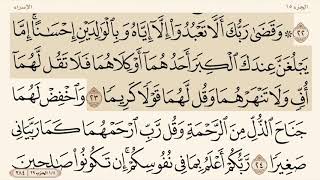 الجزء ١٥
الإسراء
٢٢ ۞ وَقَضَىٰ رَبُّكَ أَلَّا تَعْبُدُوٓا۟ إِلَّآ إِيَّاهُ وَبِٱلْوَٰلِدَيْنِ إِحْسَٰنًا ۚ إِمَّا
يَبْلُغَنَّ عِندَكَ ٱلْكِبَرَ أَحَدُهُمَآ أَوْ كِلَاهُمَا فَلَا تَقُل لَّهُمَآ
أُفٍّ وَلَا تَنْهَرْهُمَا وَقُل لَّهُمَا قَوْلًا كَرِيمًا ٢٣ وَٱخْفِضْ لَهُمَا
جَنَاحَ ٱلذُّلِّ مِنَ ٱلرَّحْمَةِ وَقُل رَّبِّ ٱرْحَمْهُمَا كَمَا رَبَّيَانِى
صَغِيرًا ٢٤ رَّبُّكُمْ أَعْلَمُ بِمَا فِى نُفُوسِكُمْ ۚ إِن تَكُونُوا۟ صَٰلِحِينَ